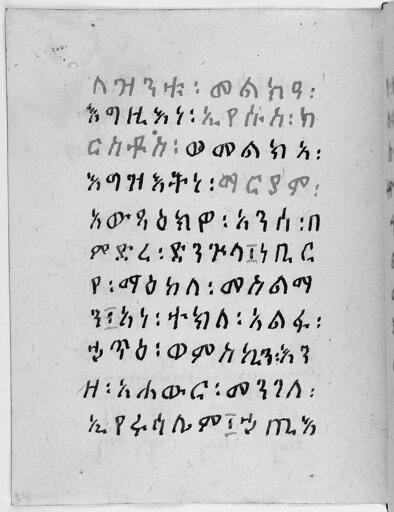 ለዝንቱ፡ መልክዓ፡
እግዚእነ፡ ኢየሱስ፡ ክ
ርስቶስ፡ ወመልክአ፡
እግዝእትነ፡ ማርያም፡
አውጻዕክዎ፡ አንሰ፡ በ
ምድረ፡ ድንጕላ፡ ነቢር
የ፡ ማዕከለ፡ መስልማ
ን፡ አነ፡ ተክለ፡ አልፋ፡
ሃጥዕ፡ ወምስኪን፡ እን
ዘ፡ አሐውር፡ መንገለ፡
ኢየሩሳሌም፡ ሃጢአ